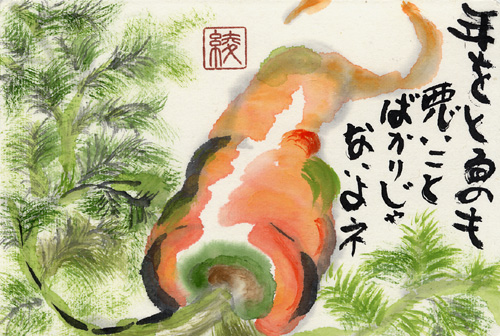 年をとるのも
悪いこと
ばかりじゃ
ないよネ
綾